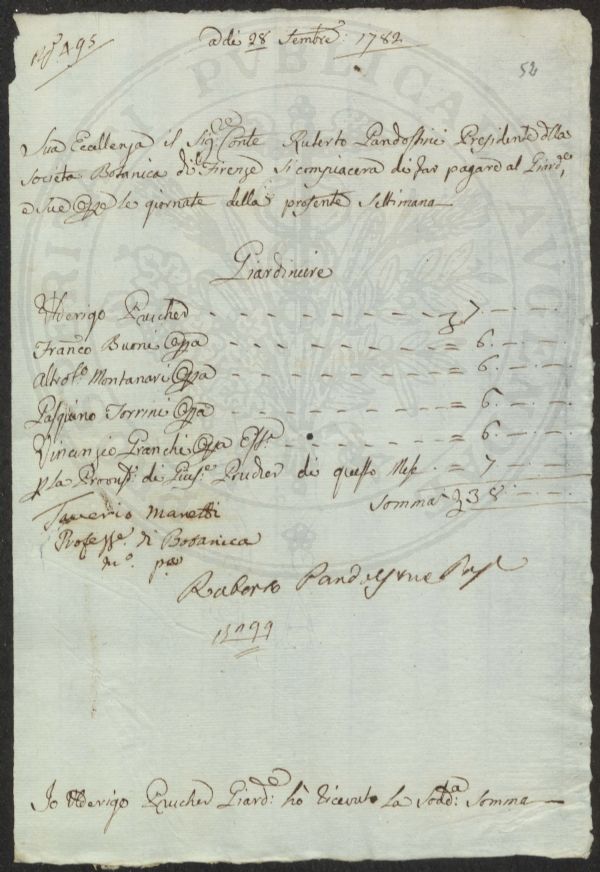 N.º 495
adì 28 Stembre: 1782
52
Sua Eccellenza il Sigre Conte Ruberto Pandolfini Presidente della
Società Botanica di Firenze si compiacera di far pagare al Giard.e
e sue Opre le giornate della presente Settimana
Giardiniere
Uderigo Prucher 7
Franco Buoni Opra = 6
Montanari Opra = 6
Pasquino Torrini Opra = 6
Vincenzio Franchi Opra = 6
P la Provv. di Prucher di questo Mese = 7
Somma 38
Saverio Manetti
Professe. di Botanica
mo. pa
Roberto Pandolfini Pres
N 99
Io Uderigo Prucher Giard.e hò ricevuto la Sodd.a Somma